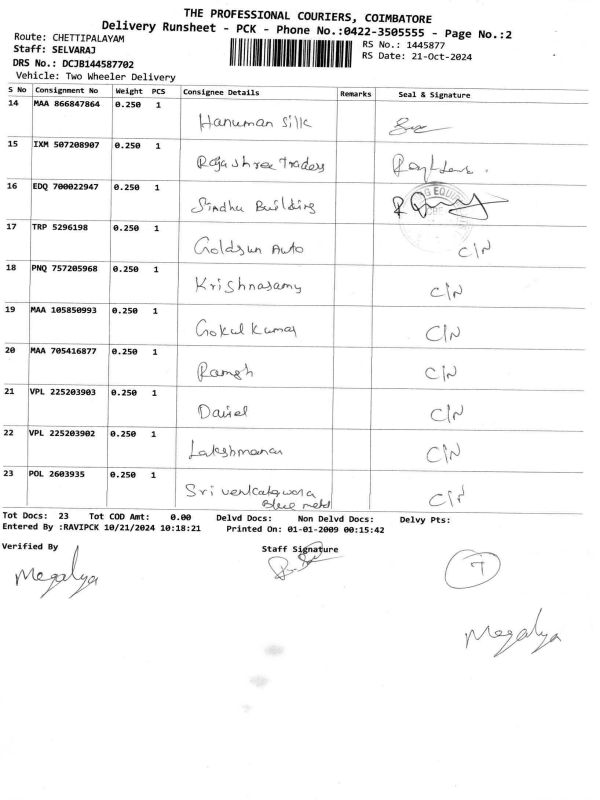 THE PROFESSIONAL COURIERS, COIMBATORE
Delivery Runsheet - PCK - Phone No.:0422-3505555 - Page No.:2
Route: CHETTIPALAYAM
RS No.: 1445877
Staff: SELVARAJ
RS Date: 21-Oct-2024
DRS No.: DCJB144587702
Vehicle: Two Wheeler Delivery
S No Consignment No Weight PCS Consignee Details Remarks Seal & Signature
14 MAA 866847864 0.250 1 Hanuman Silk
15 IXM 507208907 0.250 1 Rajashree traders
16 EDQ 700022947 0.250 1 Sindhu Building
17 TRP 5296198 0.250 1 Goldsun Auto C/N
18 PNQ 757205968 0.250 1 Krishnasamy C/N
19 MAA 105850993 0.250 1 Gokul Kumar C/N
20 MAA 705416877 0.250 1 Ramesh C/N
21 VPL 225203903 0.250 1 Daniel C/N
22 VPL 225203902 0.250 1 Lakshmanan C/N
23 POL 2603935 0.250 1 Sri venkateswara C/N
Blue metal
Tot Docs: 23 Tot COD Amt: 0.00 Delvd Docs: Non Delvd Docs: Delvy Pts:
Entered By :RAVIPCK 10/21/2024 10:18:21 Printed On: 01-01-2009 00:15:42
Verified By Staff Signature
Megalya 7
Megalya